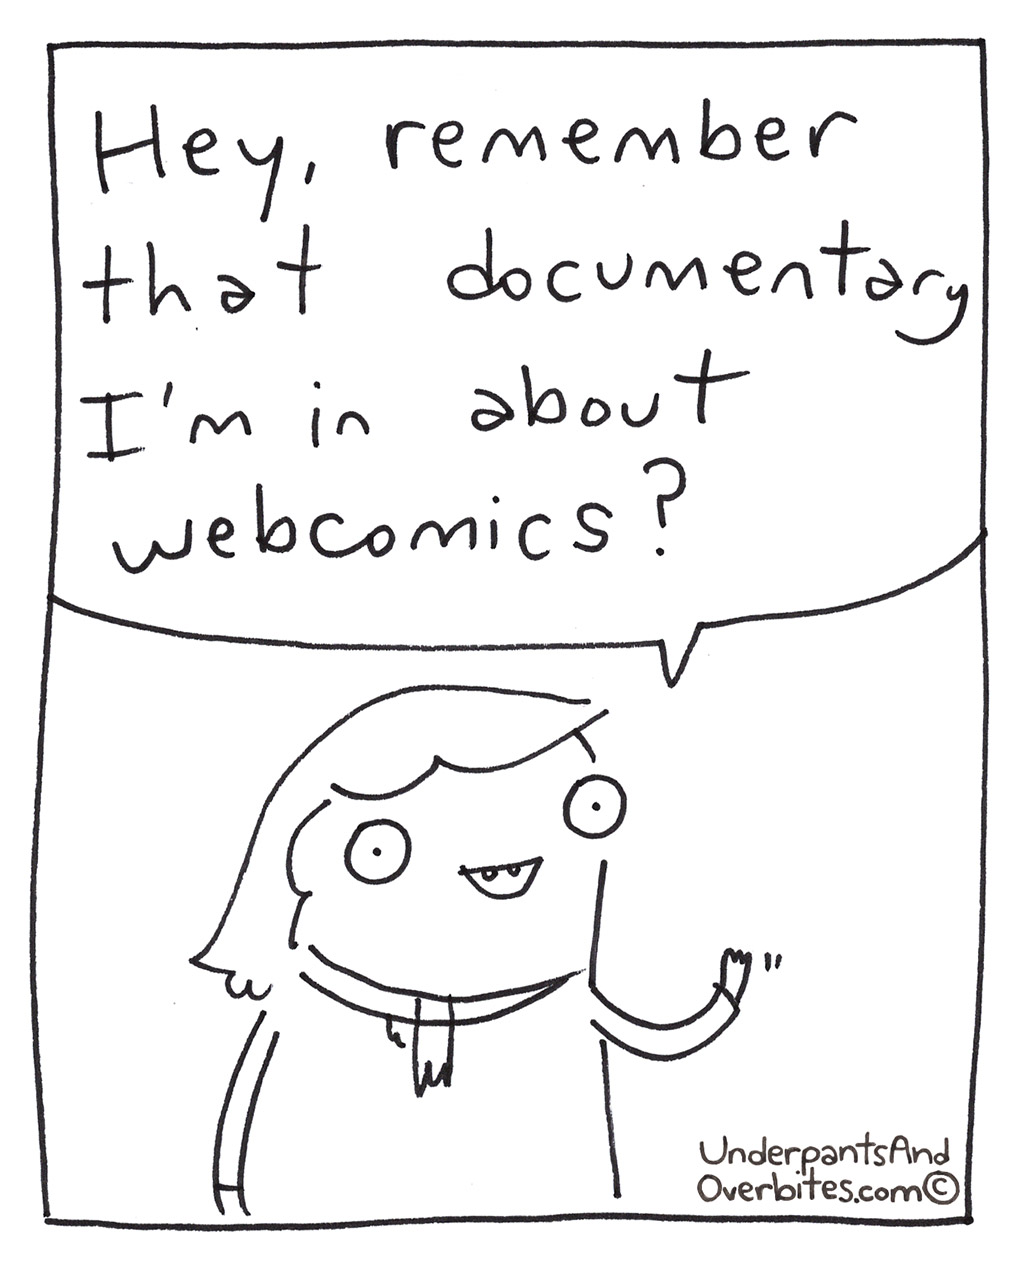 Hey, remember
that documentary
I'm in about
webcomics?
UnderpantsAnd
Overbites.com©